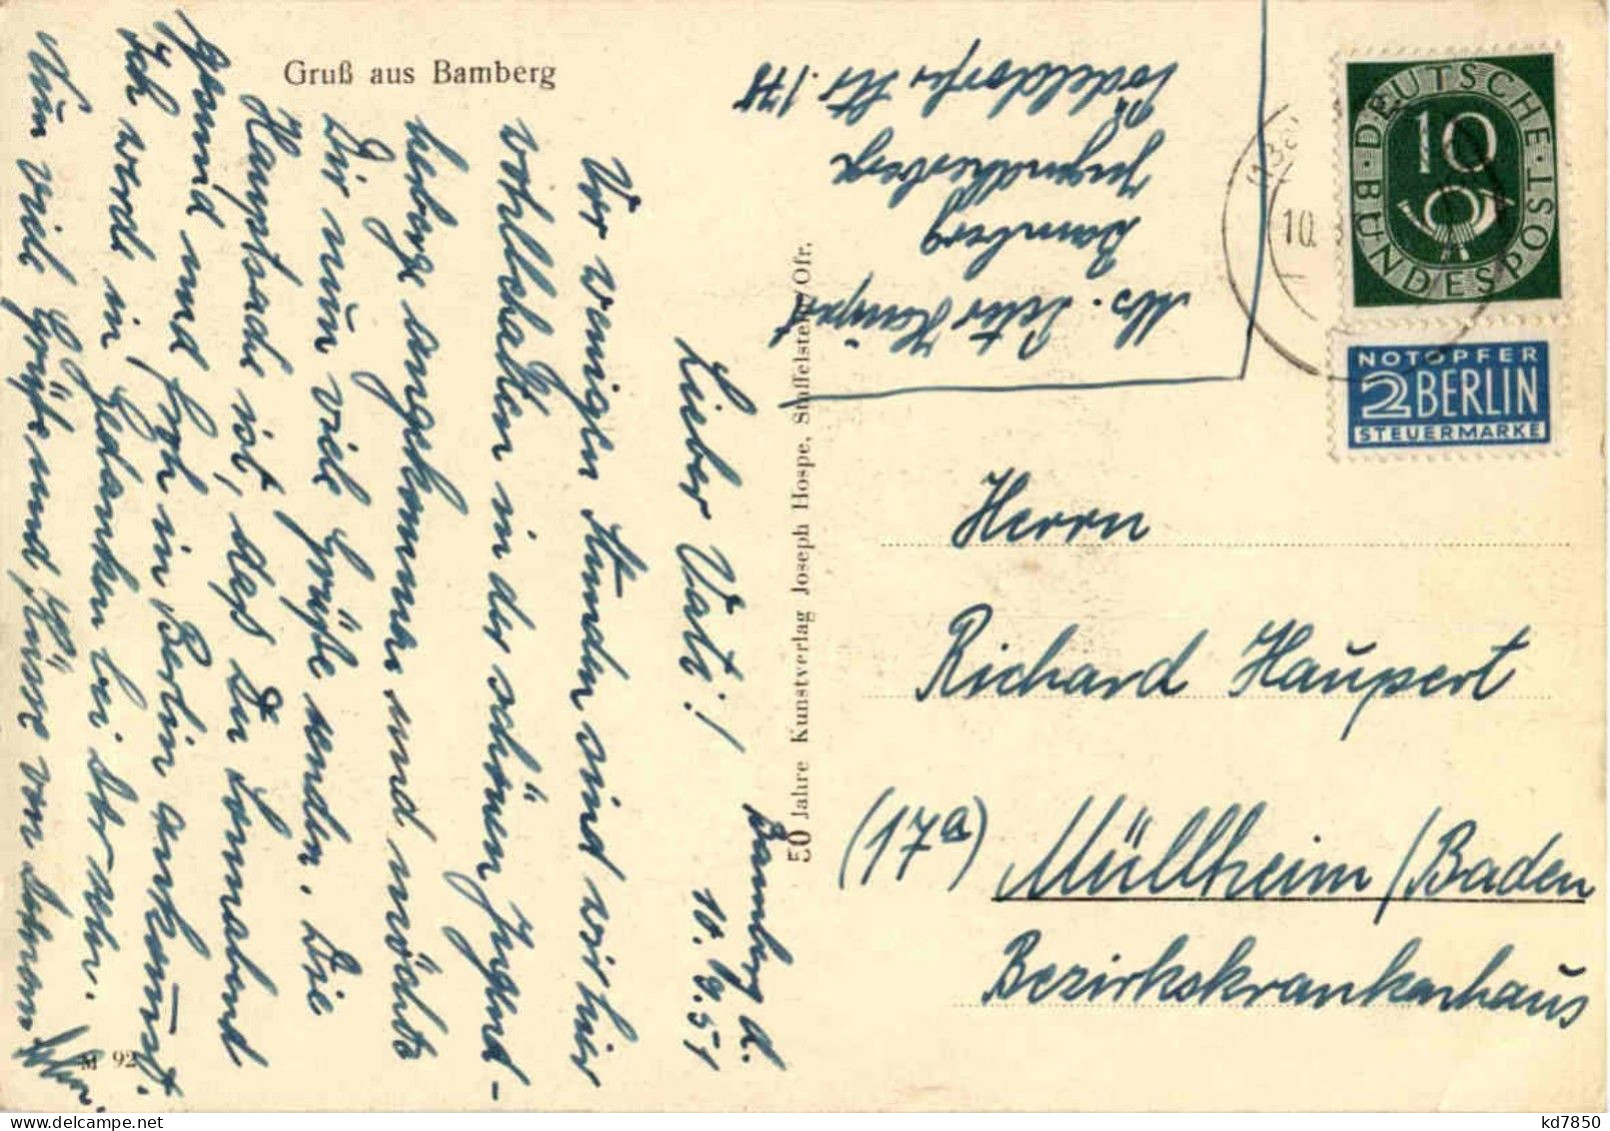 Gruß aus Bamberg
Bamberg d.
10.9.51
Lieber Vati!
Vor wenigen Stunden sind wir hier
wohlbehalten in der schönen Jugend-
herberge angekommen und möchte
Dir nun viele Grüße senden. Die
Hauptsache ist, das Du Sonnabend
gesund und froh in Berlin ankommst.
Ich werde in Gedanken bei Dir sein.
Nun viele Grüße und Küsse von Deinem
Peter.
M 92
50 Jahre Kunstverlag Joseph Hospe, Staffelstein/Ofr.
Abs. Peter Haupert
Bamberg
Jugendherberge
Pödeldorfer Str. 178
10
DEUTSCHE BUNDESPOST
10
NOTOPFER
2 BERLIN
STEUERMARKE
Herrn
Richard Haupert
(17a) Müllheim/Baden
Bezirkskrankenhaus
kd7850